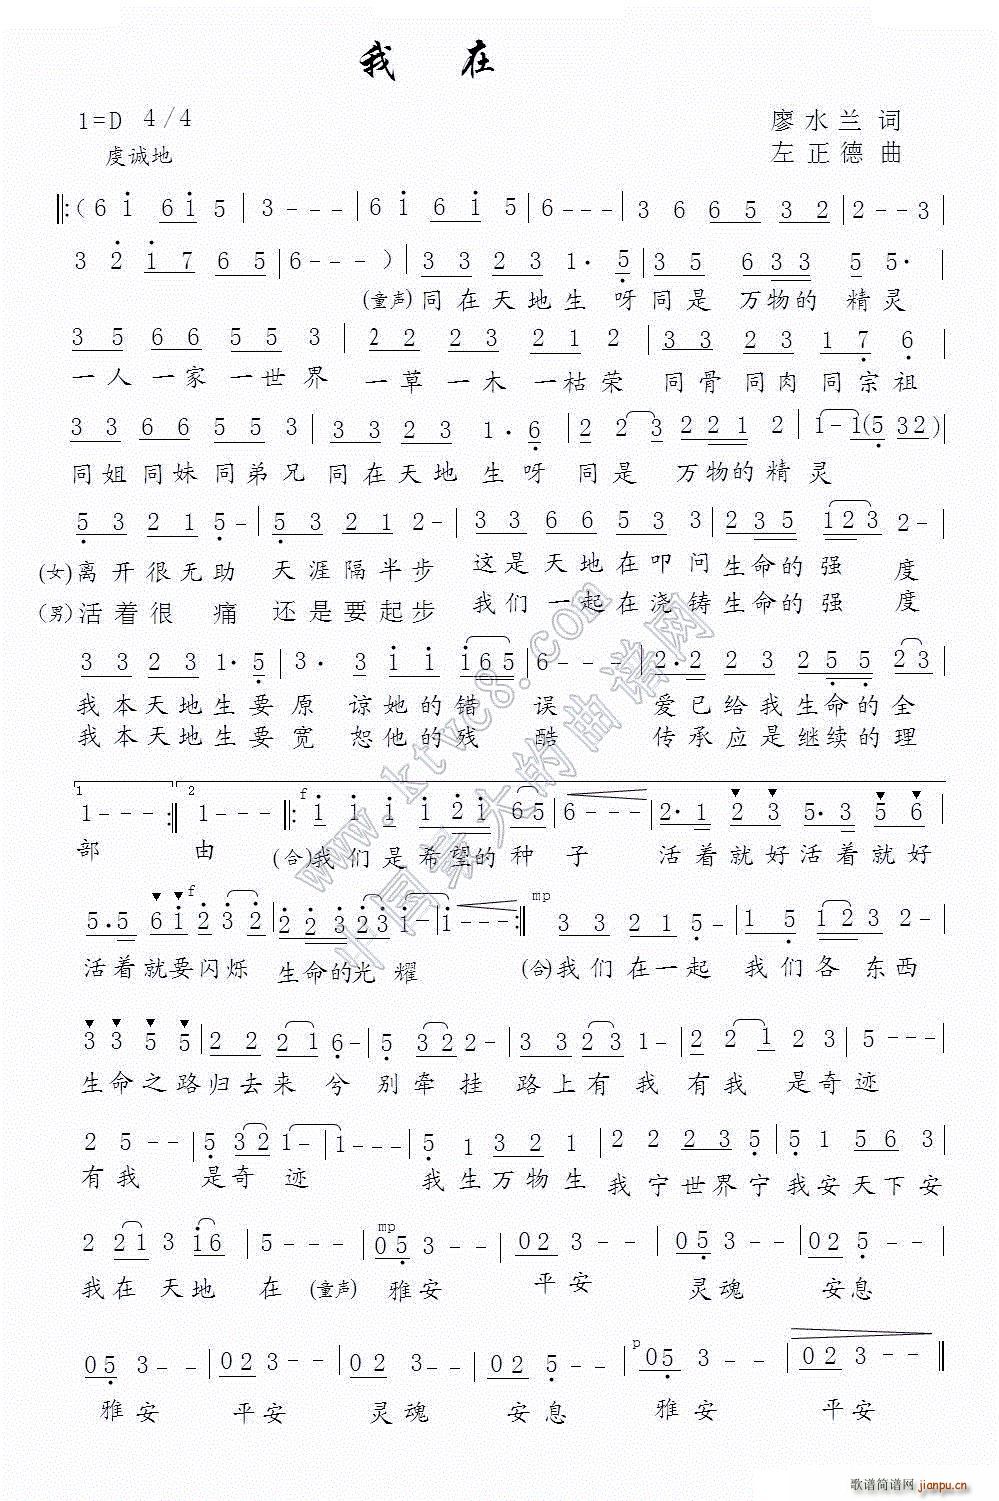 我 在
1=D 4/4
廖水兰 词
虔诚地
左正德 曲
‖:(6 i 6 i 5 | 3 - - - | 6 i 6 i 5 | 6 - - - | 3 6 6 5 3 2 | 2 - - 3 |
3 2 i 7 6 5 | 6 - - - ) | 3 3 2 3 1· 5 | 3 5 6 3 3 5 5· |
(童声)同在天地生 呀同是 万物的 精灵
3 5 6 6 5 5 3 | 2 2 2 3 2 1 2 | 3 3 2 3 1 7 6 |
一人一家一世界 一草一木一枯荣 同骨同肉同宗祖
3 3 6 6 5 5 3 | 3 3 2 3 1· 6 | 2 2 3 2 2 1 2 | 1 - 1 (5 3 2) |
同姐同妹同弟兄 同在天地 生呀 同是 万物的精灵
5 3 2 1 5 - | 5 3 2 1 2 - | 3 3 6 6 5 3 3 | 2 3 5 1 2 3 2 - |
(女)离开很无助 天涯隔半步 这是天地在叩问生命的强 度
(男)活着很 痛 还是要起步 我们一起在浇铸生命的强 度
3 3 2 3 1· 5 | 3· 3 i i i 6 5 | 6 - - - | 2· 2 2 3 2 5 5 2 3 |
我本天地生要原 谅她的错 误 爱已给我生命的全
我本天地生要宽 恕他的残 酷 传承应是继续的理
1 2 f
1 - - - :‖ 1 - - - ‖: i i i i 2 i 6 5 | 6 - - - | 2· 1 2 3 5· 3 5 6 |
部 由 (合)我们是希望的种 子 活着就好活着就好
f mp
5· 5 6 i 2 3 2 | 2 2 3 2 3 i - | i - - - :‖ 3 3 2 1 5 - | 1 5 1 2 3 2 - |
活着就要闪烁 生命的光 耀 (合)我们在一起 我们各 东西
3 3 5 5 | 2 2 2 1 6 - | 5 3 2 2 - | 3 3 2 3 1 - | 2 2 1 2 3 | 5 - - - |
生命之路归去来 兮 别牵挂 路上有 我 有我 是奇迹
2 5 - - | 5 3 2 1 - | 1 - - - | 5 1 3 2 1 | 2 2 2 3 5 | 5 1 5 6 3 |
有我 是奇迹 我生万物生 我宁世界宁 我安天下安
mp
2 2 1 3 i 6 | 5 - - - | 0 5 3 - - | 0 2 3 - - | 0 5 3 - - | 0 2 5 - - |
我在 天地 在 (童声) 雅安 平安 灵魂 安息
p
0 5 3 - - | 0 2 3 - - | 0 5 3 - - | 0 2 5 - - | 0 5 3 - - | 0 2 3 - - ‖
雅安 平安 灵魂 安息 雅安 平安
www.ktvc8.com
中国最大的曲谱网
歌谱简谱网
jianpu.cn